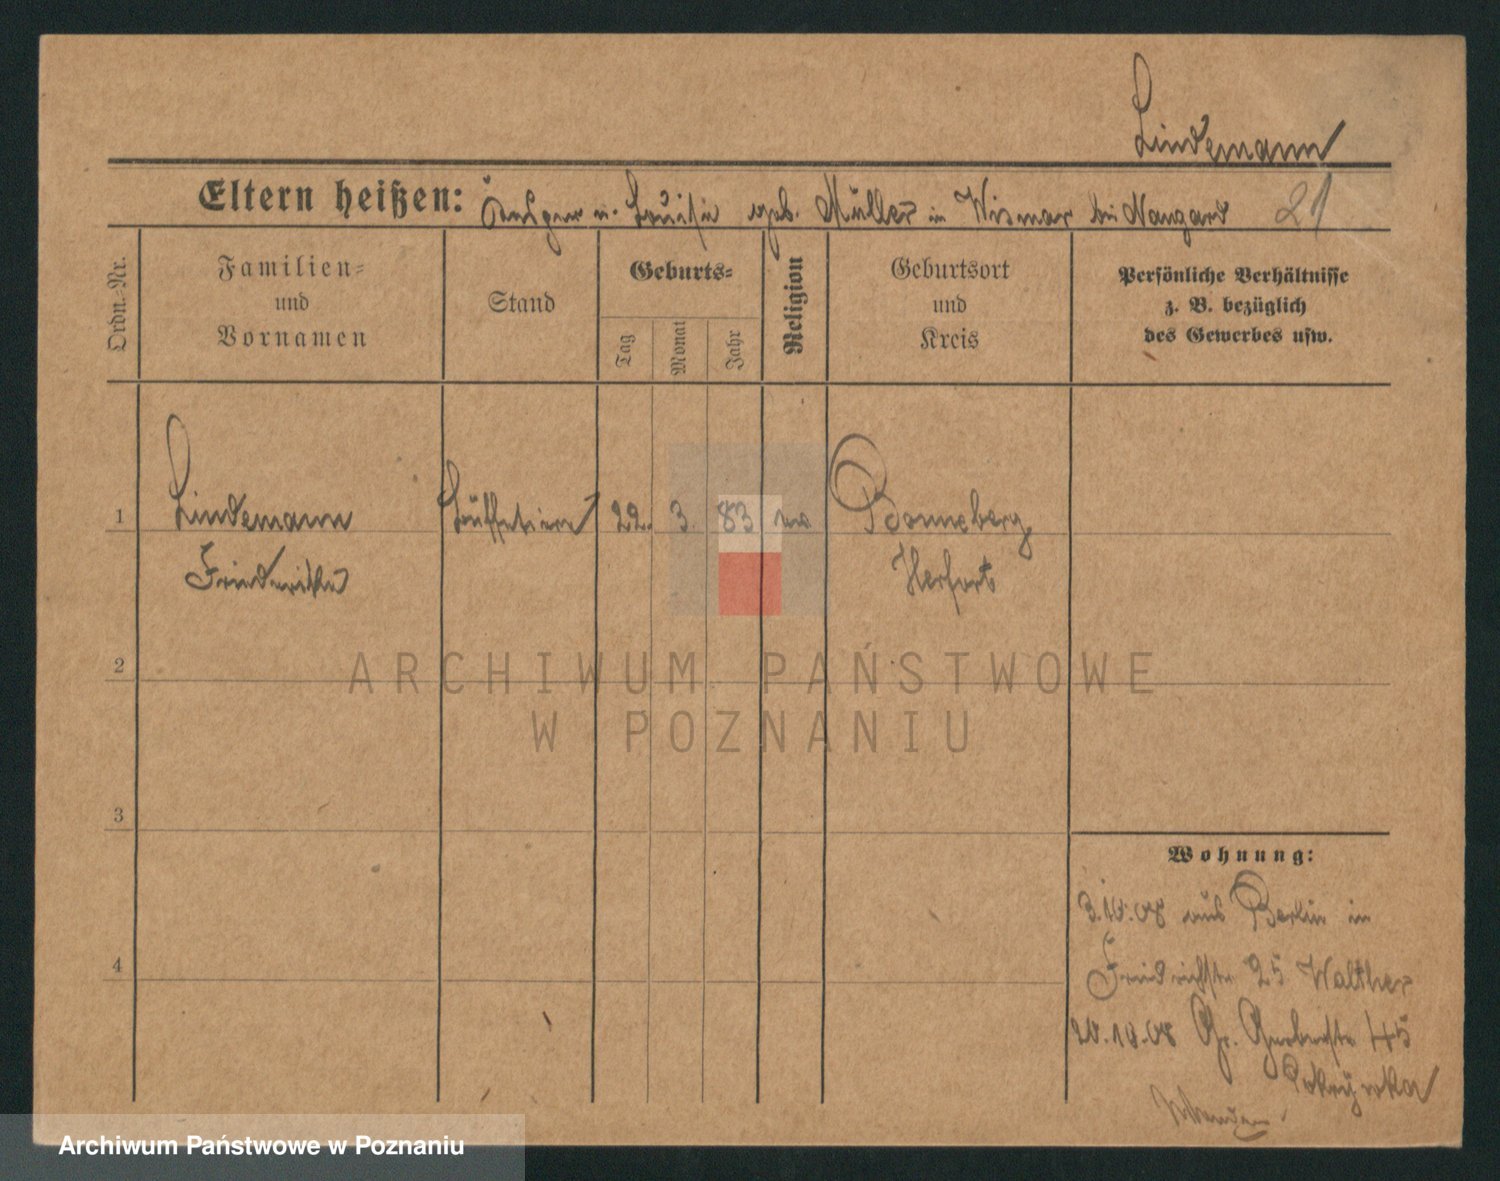 Lindemann
Eltern heißen: u. Louise geb. Müller in Wismar bei Naugard 21
Ordn.-Nr.
Familien-
und
Vornamen
Stand
Geburts-
Tag
Monat
Jahr
Religion
Geburtsort
und
Kreis
Persönliche Verhältnisse
z. B. bezüglich
des Gewerbes usw.
1 Lindemann Büffetiere 22. 3. 83 Bonneberg
Friederike Herfort
2
ARCHIWUM PAŃSTWOWE
W POZNANIU
3
Wohnung:
3.10.08 aus Berlin in
4
Friedrichstr 25 Walther
20.10.08 Gr. Gerberstr 45
Archiwum Państwowe w Poznaniu